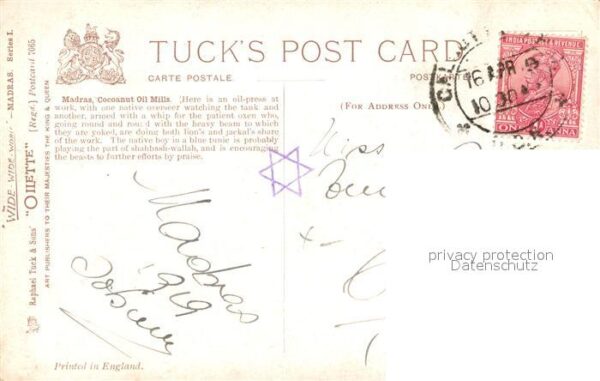 TUCK'S POST CARD
CARTE POSTALE.
POSTKARTE
(FOR ADDRESS ONLY
Madras, Cocoanut Oil Mills. (Here is an oil-press at
work, with one native overseer watching the tank and
another, armed with a whip for the patient oxen who,
going round and round with the heavy beam to which
they are yoked, are doing both lion's and jackal's share
of the work. The native boy in a blue tunic is probably
playing the part of shahbash-wallah, and is encouraging
the beasts to further efforts by praise.
Raphael Tuck & Sons' "OILETTE" [Regd.] Postcard 7065
"WIDE-WIDE-WORLD" — MADRAS. Series I.
ART PUBLISHERS TO THEIR MAJESTIES THE KING & QUEEN
INDIA POSTAGE & REVENUE
16 APR
10.30 A
ONE ANNA
Miss
Madras
1919
privacy protection
Datenschutz
Printed in England.